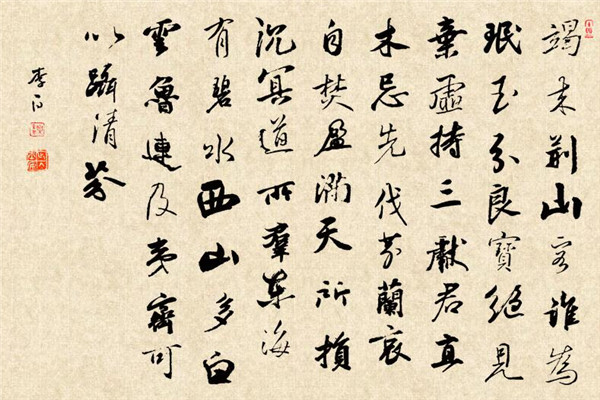 竭来荆山客誰為
珉玉分良寶絕見
棄虛持三獻君直
木忌先伐芬蘭哀
自焚盈滿天所損
沉冥道所羣東海
有碧水西山多白
雲魯連及夷齊可
以躡清芬
李白